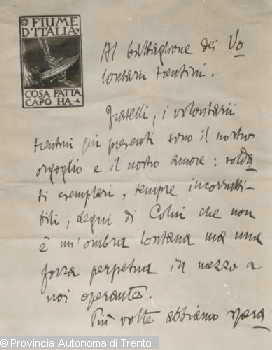 FIUME
D'ITALIA
COSA FATTA
CAPO HA
Al battaglione dei Vo
lontari trentini.
Fratelli, i volontarii
trentini qui presenti sono il nostro
orgoglio e il nostro amore: solda
ti esemplari, sempre incorrut
bili, degni di Colui che non
è un'ombra lontana ma una
forza perpetua in mezzo a
noi operante.
Più volte abbiamo
© Provincia Autonoma di Trento